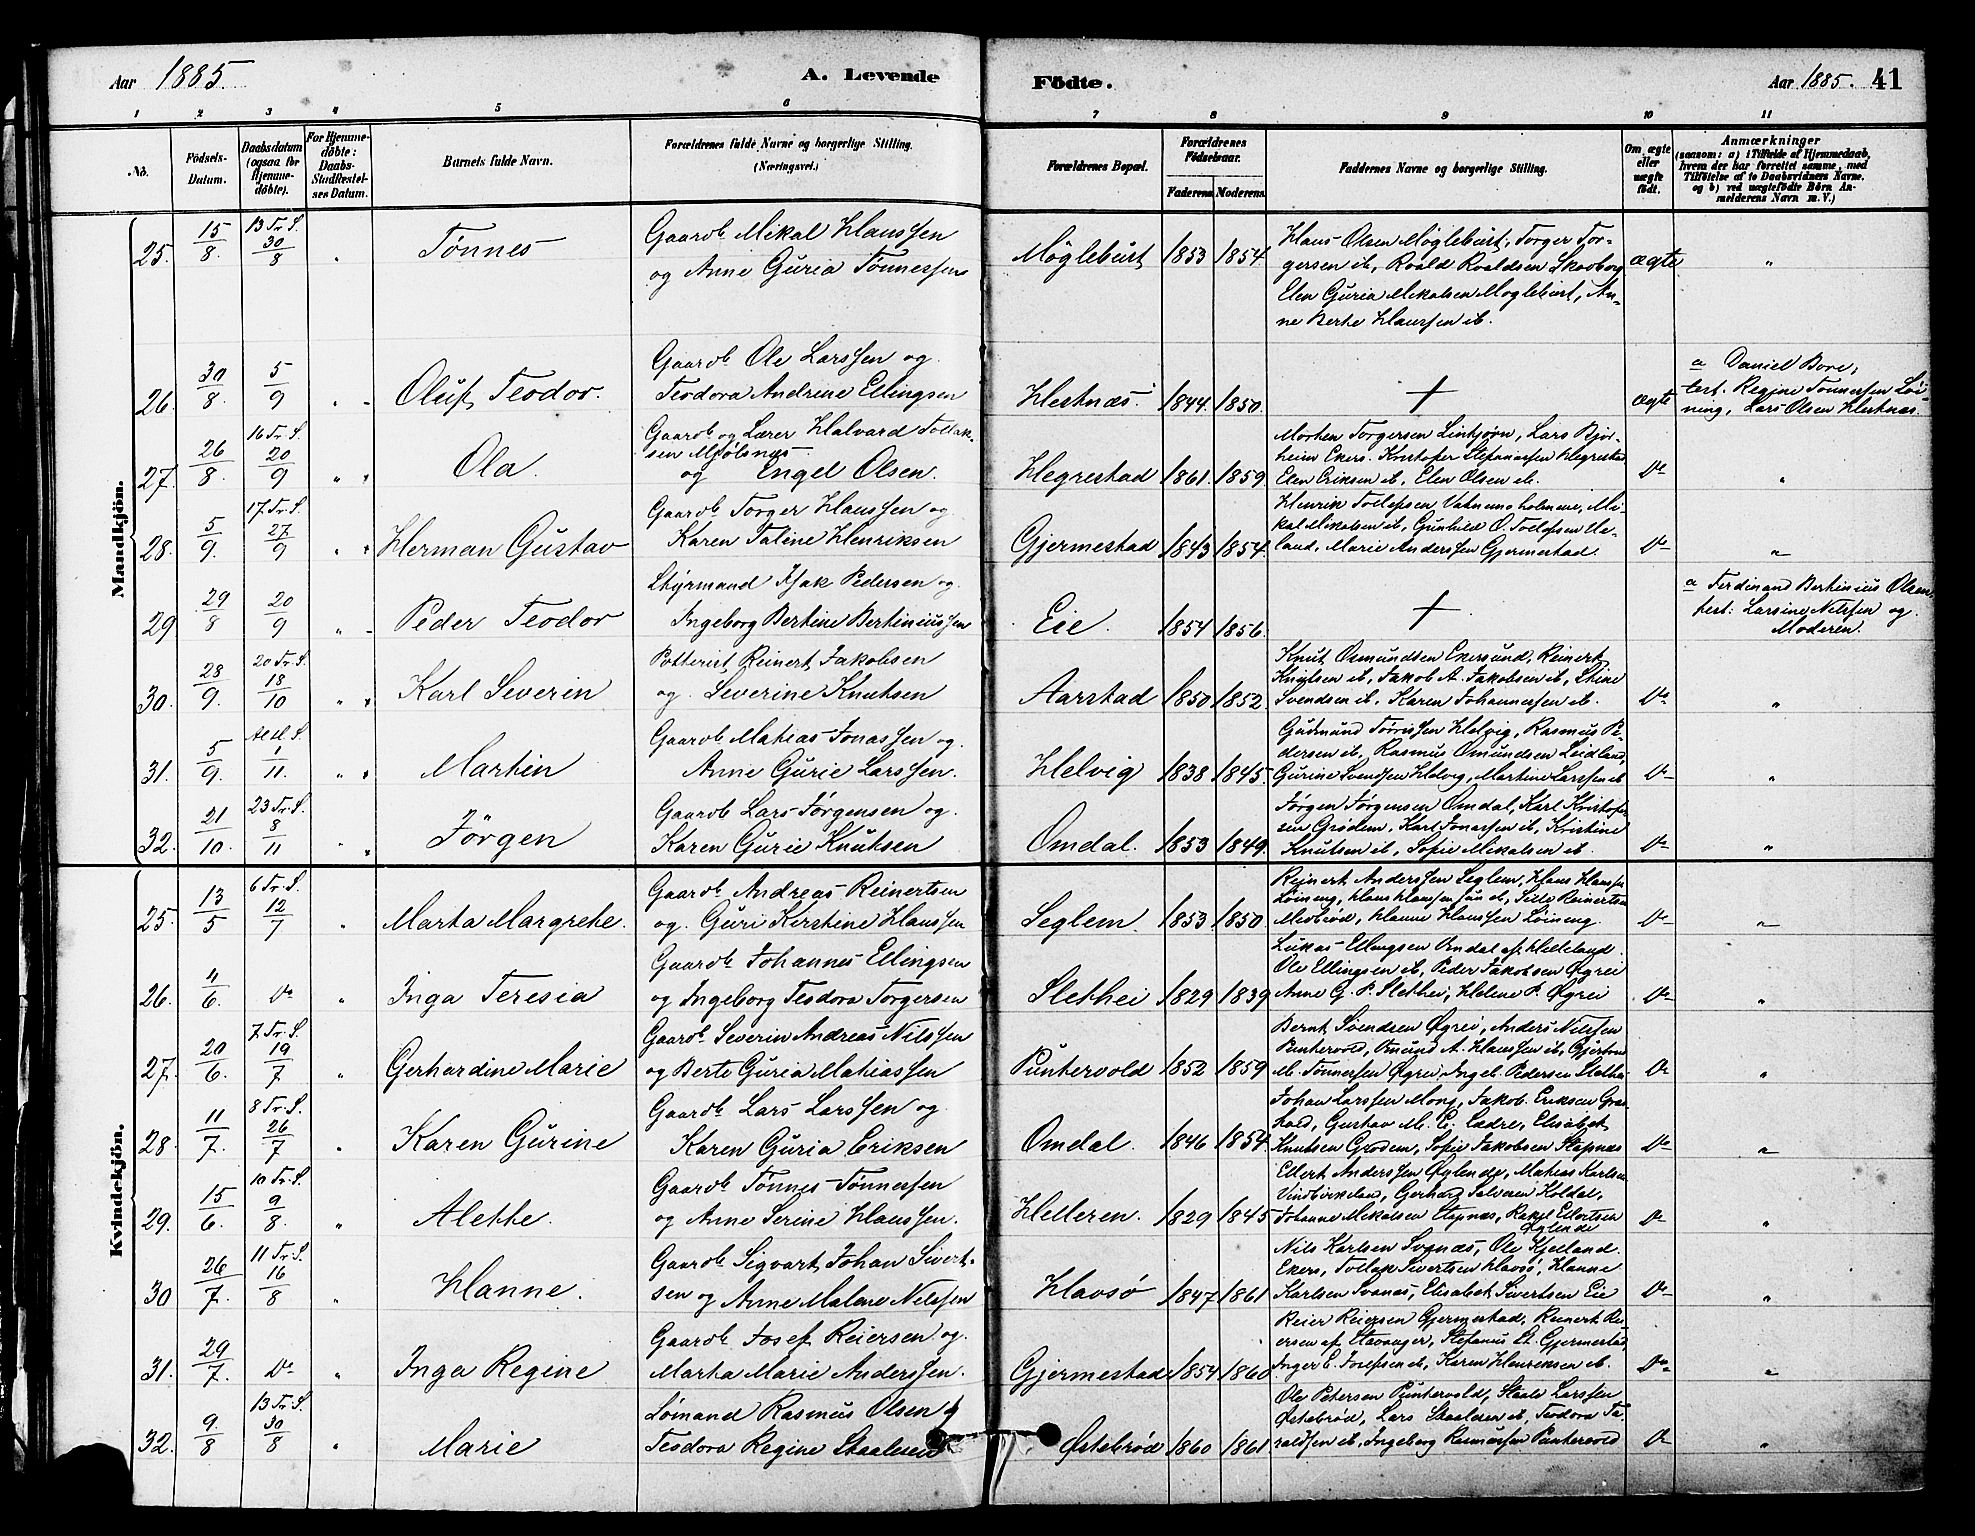 Aar 1885.
A. Levende
Födte.
Aar 1885.
41
1 2 3 4 5 6 7 8 9 10 11
No.
Födsels-Datum.
Daabsdatum (ogsaa for Hjemmedöbte).
For Hjemmedöbte: Daabs-Stadfæstelses Datum.
Barnets fulde Navn.
Forældrenes fulde Navne og borgerlige Stilling. (Næringsvei.)
Forældrenes Bopæl.
Forældrenes Födselsaar.
Faderens Moderens
Faddernes Navne og borgerlige Stilling.
Om ægte eller uægte födt.
Anmærkninger
(saasom: a) i Tilfælde af Hjemmedaab, hvem der har forrettet samme, med Tilföielse af to Daabsvidners Navne, og b) ved uægtefödte Börn Anmelderens Navn m. V.)
Mandkjön.
25. 15/8. 13 Tr. S. 30/8 " Tønnes
Gaardb. Mikal Hanssen
og Anne Guria Tønnessen
Møglebust 1853 1854.
Hans Olsen Møglebust, Torger Tor-
gersen ib, Roald Roaldsen Skadberg
Elen Guria Mikalsen Møglebust, An-
ne Berte Hanssen ib.
ægte "
26. 30/8. 5/9 " Oluf Teodor.
Gaardb. Ole Larssen og
Teodora Andrine Ellingsen
Hestnæs. 1844. 1850. + ægte
a Daniel Bore,
test. Regine Tønnessen Løi-
ning, Lars Olsen Hestnæs.
27. 26/8. 16 Tr. S. 20/9 " " Ola.
Gaardb. og Lærer Halvard Tollak-
sen Mjølsnæs
og Engel Olsen.
Hegrestad 1861. 1859.
Morten Torgersen Linhjørn, Lars Bjor-
heim Ekers. Kristofer Stefanussen Hegrestad
Elen Eriksen ib, Elen Olsen ib.
Do "
28. 5/9. 17 Tr. S. 27/9 " " Herman Gustav
Gaardb. Torger Hanssen og
Karen Taline Henriksen
Gjermestad 1843 1854.
Henrik Tollefsen Vatnemo holmene, Mi-
kal Mikalsen ib, Gunhild O. Tollefsen
land, Marie Anderssen Gjermestad
Do "
29 29/8 20/9 " Peder Teodor
Styrmand Isak Pedersen og
Ingeborg Bertine Bertiniussen
Eie. 1854 1856. +
a Ferdinand Bertinius Olsen,
test: Larsine Nilssen og
Moderen.
30. 28/9. 20 Tr. S. 18/10 " " Karl Severin
Potterist Reinert Jakobsen
og Severine Knutsen
Aarstad 1850 1852.
Knut Osmundsen Ekersund, Reinert
Knutsen ib, Jakob A. Jakobsen ib, Stine
Svendsen ib, Karen Johannessen ib.
Do "
31. 5/9. Al. H. S. 1/11. " " Martin
Gaardb. Matias Jonassen og
Anne Gurie Larssen.
Helvig 1838 1845.
Gudmund Tørrissen Helvig, Rasmus Pe-
dersen ib, Rasmus Omundsen Leidland,
Gurine Svendsen Helvig, Martine Larssen ib
Do "
32. 21/10. 23 Tr. S. 8/11 " " Jörgen
Gaardb. Lars Jørgensen og
Karen Gurie Knutsen
Omdal. 1853 1849.
Jørgen Jørgensen Omdal, Karl Kristofer-
sen Grødem, Karl Jonassen ib, Kristine
Knutsen ib, Sofie Mikalsen ib.
Do "
Kvindekjön.
25. 13/5 6 Tr. S. 12/7 " Marta Margrete.
Gaardb. Andreas Reinertsen
og Guri Kirstine Hanssen
Seglem. 1853 1850.
Reinert Anderssen Seglem, Hans Hanssen
Løining, Hans Hanssen jun ib, Sille Reinertsen
Midbrød, Hanne Hanssen Løining.
Do "
26. 4/6. Do " Inga Teresia
Gaardb. Johannes Ellingsen
og Ingeborg Teodora Torgersen
Slethei 1829 1839
Lukas Ellingsen Omdal af Helleland.
Ole Ellingsen ib, Peder Jakobsen Øgrei
Anne G. P. Slethei, Helene P. Øgrei
Do "
27. 20/6. 7 Tr. S. 19/7 " Gerhardine Marie
Gaardb. Severin Andreas Nilssen
og Berte Guria Matiassen
Puntervold 1852 1859
Bernt Svendsen Øgrei, Anders Nilssen
Puntervold, Omund A. Hanssen ib, Gjertine
M. Tønnessen Øgrei, Ingeb. Pedersen Slethei
Do "
28. 11/7. 8 Tr. S. 26/7 " Karen Gurine
Gaardb. Lars Larssen og
Karen Guria Eriksen
Omdal. 1846 1854.
Johan Larssen Mong, Jakob Eriksen
Gustav M. E. Lædre, Elisabet
Knutsen Grødem, Sofie Jakobsen Stapnæs
Do "
29. 15/6. 10 Tr. S. 9/8. " Alette.
Gaardb. Tønnes Tønnessen
og Anne Serine Hanssen.
Helleren. 1829 1845
Ellert Anderssen Øglende, Matias Karlsen
Vindbirkeland, Gerhard Salvesen Koldal,
Johanne Mikalsen Stapnæs, Rakel Ellertsen
Øglende
Do "
30 26/7. 11 Tr. S. 16/8 " Hanne.
Gaardb. Sigvart Johan Sivert-
sen og Anne Malene Nilssen
Havsø 1847 1861
Nils Karlsen Svanæs, Ole Kjelland
Ekers, Tollak Sivertsen Havsø, Hanne
Karlsen Svanæs, Elisabet Sivertsen Eie
Do "
31. 29/7. Do " Inga Regine
Gaardb. Josef Reiersen og
Marta Marie Anderssen.
Gjermestad 1854 1860
Reier Reiersen Gjermestad, Reinert Rei-
ersen af Stavanger, Stefanus St. Gjermestad,
Inger E. Josefsen ib, Karen Henriksen ib.
Do "
32. 9/8 13 Tr. S. 30/8 " Marie
Sømand Rasmus Olsen
Teodora Regine Staalesen
Østebrød 1860 1861
Ole Petersen Puntervold, Staale Larssen
Østebrød, Lars Staalesen ib, Teodora Ta-
raldsen ib, Ingeborg Rasmussen Puntervold
Do "